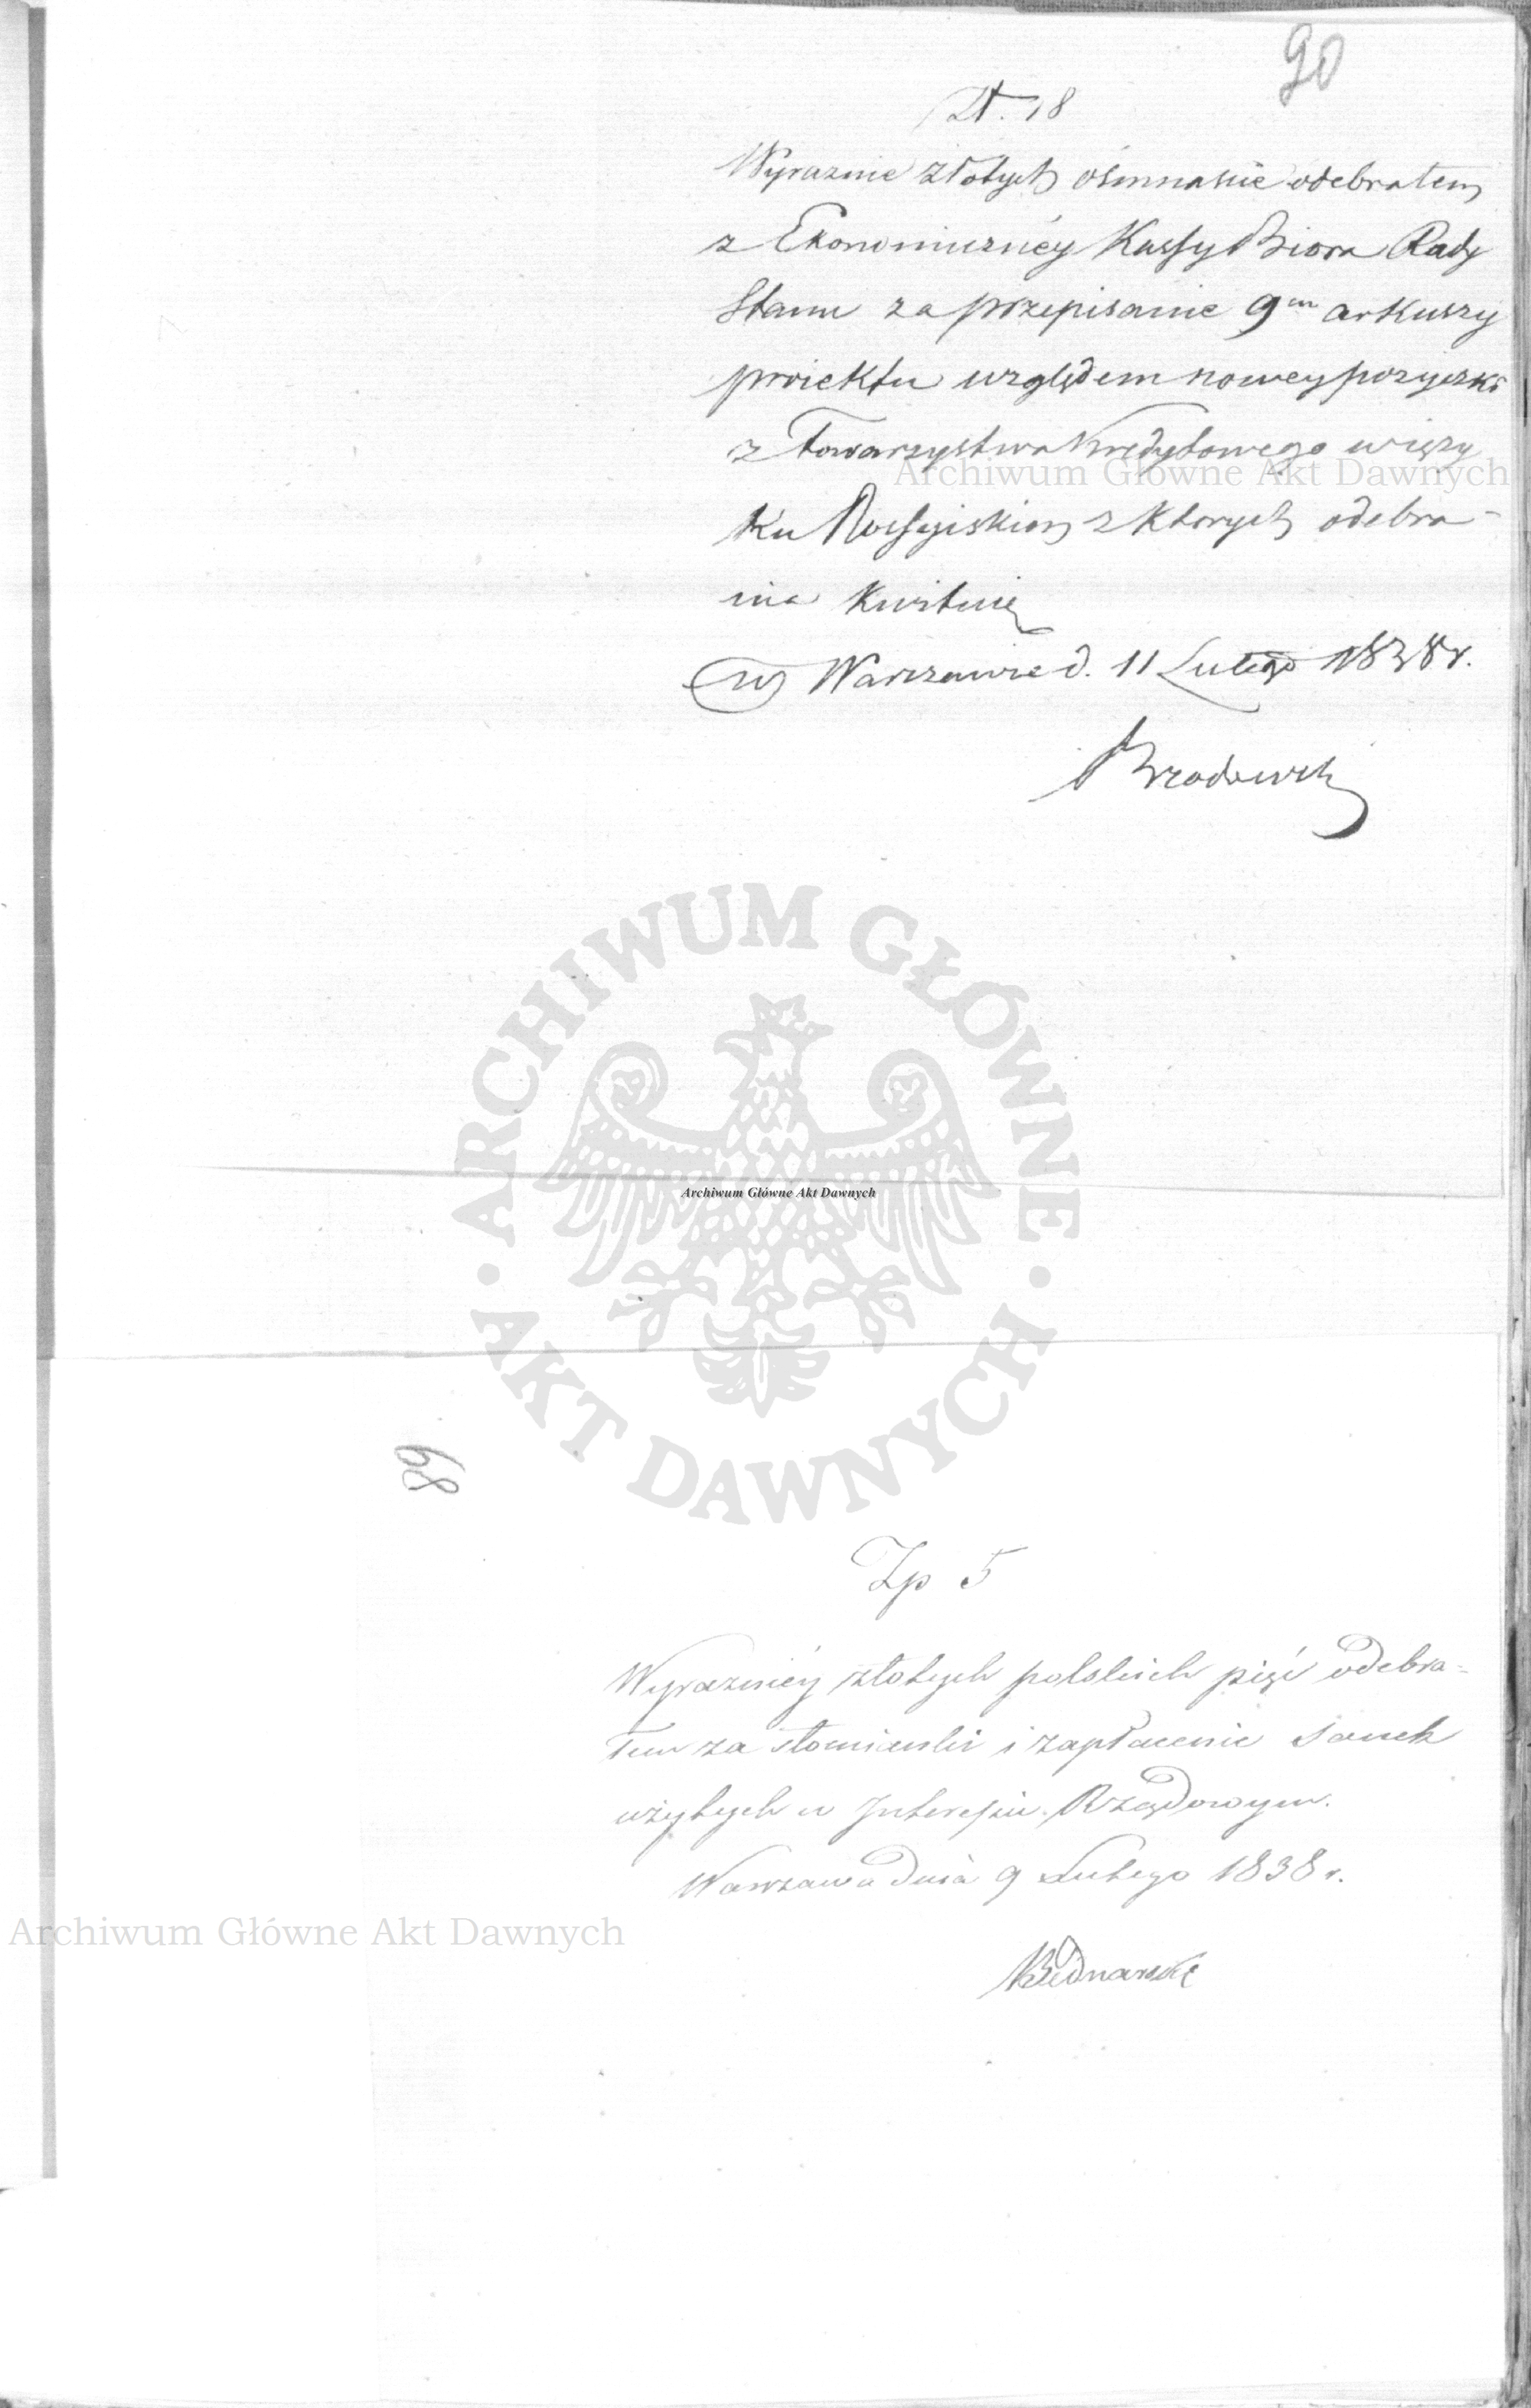 90
Zł. 18
Wyraznie złotych ośmnaście odebrałem
z Ekonomicznéy Kassy Biora Rady
Stanu za przepisanie 9ciu arkuszy
proiektu względem nowey pozyczki
z Towarzystwa Kredytowego w ięzy
Archiwum Główne Akt Dawnych
ku Rossyiskim z ktorych odebra-
nia kwituię
w Warszawie d. 11 Lutego 1838 r.
Brzodowski
ARCHIWUM GŁÓWNE AKT DAWNYCH
Archiwum Główne Akt Dawnych
89
Zp 5
Wyrazniéy złotych polskich pięć odebra=
łem za słomianki i zapłacenie sanek
użytych w Interessie Rządowym.
Warszawa dnia 9 Lutego 1838 r.
Archiwum Główne Akt Dawnych
Bednarski